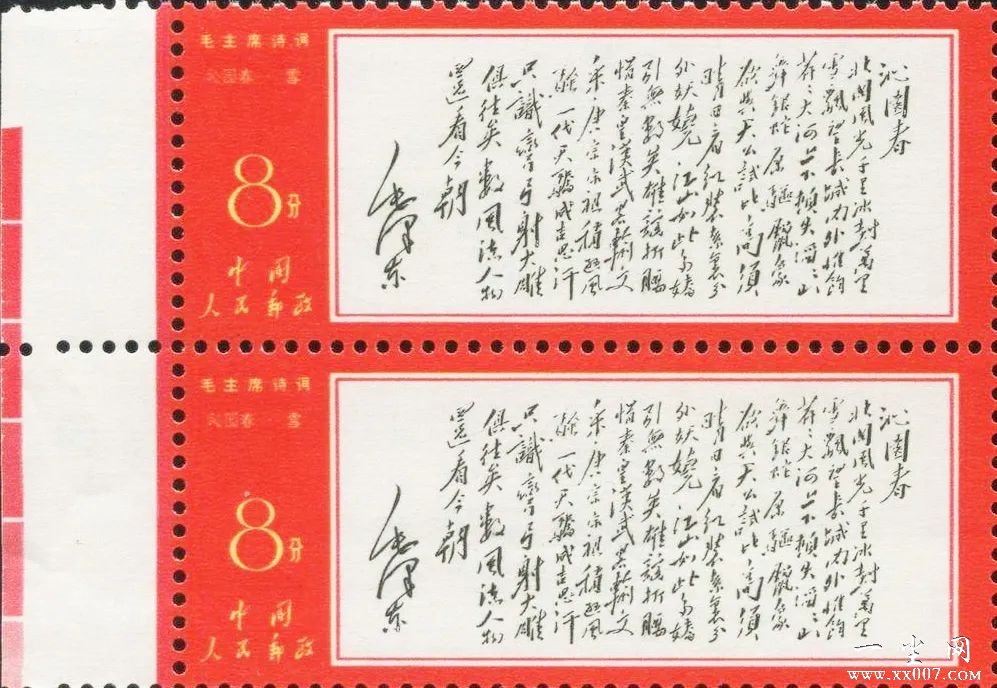 毛主席诗词
沁园春 雪
8分
中国
人民邮政
沁園春
北國風光千里冰封萬里
雪飄望長城内外惟餘
莽々大河上下頓失滔々山
舞銀蛇原驅蠟象
欲與天公試比高須
晴日看紅裝素裹分
外妖嬈江山如此多嬌
引無數英雄競折腰
惜秦皇漢武略輸文
采唐宗宋祖稍遜風
騷一代天驕成吉思汗
只識彎弓射大雕
俱往矣數風流人物
還看今朝
毛澤东
毛主席诗词
沁园春 雪
8分
中国
人民邮政
沁園春
北國風光千里冰封萬里
雪飄望長城内外惟餘
莽々大河上下頓失滔々山
舞銀蛇原驅蠟象
欲與天公試比高須
晴日看紅裝素裹分
外妖嬈江山如此多嬌
引無數英雄競折腰
惜秦皇漢武略輸文
采唐宗宋祖稍遜風
騷一代天驕成吉思汗
只識彎弓射大雕
俱往矣數風流人物
還看今朝
毛澤东
一尘网
www.xx007.com